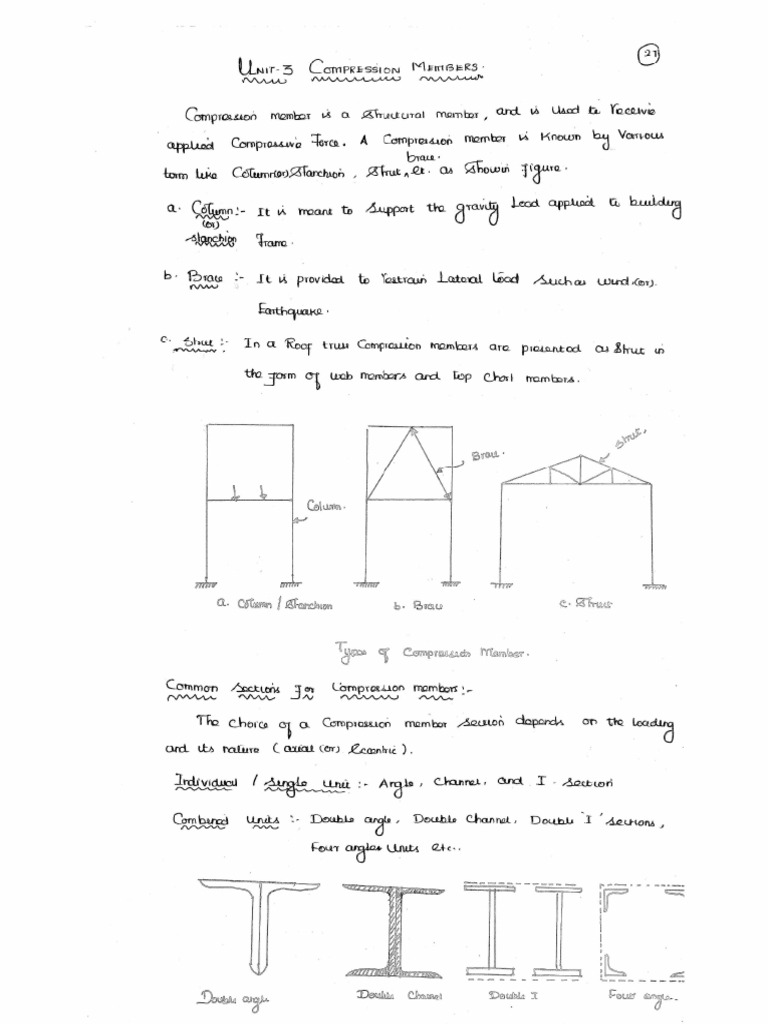 27
UNIT-3 COMPRESSION MEMBERS.
Compression member is a structural member, and is used to receive
applied Compressive Force. A Compression member is known by various
brace.
term like Column(or)Stanchion, Strut, etc. as shown figure.
a. Column:- It is meant to support the gravity Load applied to building
(or)
stanchion Frame.
b. Brace :- It is provided to restrain Lateral load such as wind (or).
Earthquake.
c. Strut:- In a Roof truss Compression members are presented as Strut in
the form of web members and top chord members.
Strut,
Brace.
Column.
a. Column / Stanchion
b. Brace
c. Struts
Types of Compression Member.
Common Sections for Compression members:-
The choice of a Compression member section depends on the loading
and its nature (axial (or) Eccentric).
Individual / single unit :- Angle, channel, and I - section
Combined Units :- Double angle, Double Channel, Double 'I' sections,
Four angles Units etc..
Double angle
Double Channel
Double I
Four angle..